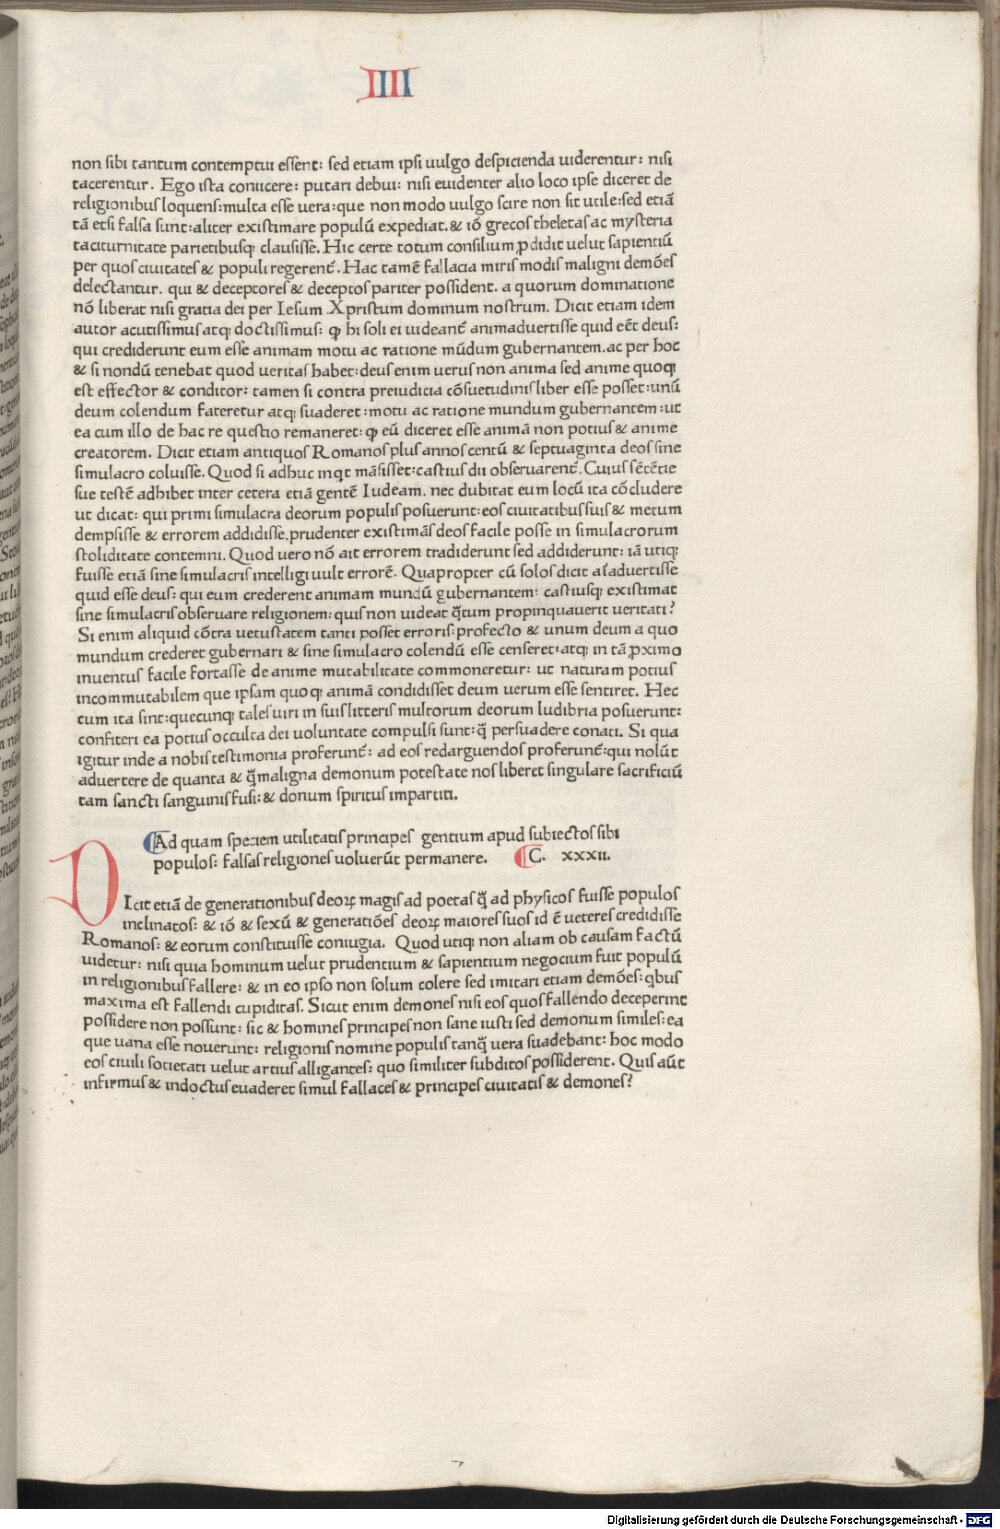 IIII
non sibi tantum contemptui essent: sed etiam ipsi uulgo despicienda uiderentur: nisi
tacerentur. Ego ista coniicere: putari debui: nisi euidenter alio loco ipse diceret de
religionibus loquens: multa esse uera: que non modo uulgo scire non sit utile: sed etiā
tā etsi falsa sunt: aliter existimare populū expediat. & iō grecos theletas ac mysteria
taciturnitate parietibusq; clausisse. Hic certe totum consilium ꝓdidit uelut sapientiū
per quos ciuitates & populi regerent̄. Hac tamē fallacia miris modis maligni demōes
delectantur. qui & deceptores & deceptos pariter possident. a quorum dominatione
nō liberat nisi gratia dei per Iesum Xpristum dominum nostrum. Dicit etiam idem
autor acutissimus atq; doctissimus: ꝙ hi soli ei uideant̄ animaduertisse quid eēt deus:
qui crediderunt eum esse animam motu ac ratione mūdum gubernantem. ac per hoc
& si nondū tenebat quod ueritas habet: deus enim uerus non anima sed anime quoq;
est effector & conditor: tamen si contra preiudicia cōsuetudinis liber esse posset: unū
deum colendum fateretur atq; suaderet: motu ac ratione mundum gubernantem: ut
ea cum illo de hac re questio remaneret: ꝙ eū diceret esse animā non potius & anime
creatorem. Dicit etiam antiquos Romanos plus annos centū & septuaginta deos sine
simulacro coluisse. Quod si adhuc inqt māsisset: castius dii obseruarent̄. Cuius sētētie
sue testē adhibet inter cetera etiā gentē Iudeam. nec dubitat eum locū ita cōcludere
ut dicat: qui primi simulacra deorum populis posuerunt: eos ciuitatibus suis & metum
dempsisse & errorem addidisse. prudenter existimās deos facile posse in simulacrorum
stoliditate contemni. Quod uero nō ait errorem tradiderunt sed addiderunt: iā utiq;
fuisse etiā sine simulacris intelligi uult errorē. Quapropter cū solos dicit aīaduertisse
quid esse deus: qui eum crederent animam mundū gubernantem: castiusq; existimat
sine simulacris obseruare religionem: quis non uideat q̄tum propinquauerit ueritati?
Si enim aliquid cōtra uetustatem tanti posset erroris: profecto & unum deum a quo
mundum crederet gubernari & sine simulacro colendū esse censeret: atq; in tā ꝓximo
inuentus facile fortasse de anime mutabilitate commoneretur: ut naturam potius
incommutabilem que ipsam quoq; animā condidisset deum uerum esse sentiret. Hec
cum ita sint: quecunq; tales uiri in suis litteris multorum deorum ludibria posuerunt:
confiteri ea potius occulta dei uoluntate compulsi sunt: q̄ persuadere conati. Si qua
igitur inde a nobis testimonia proferunt̄: ad eos redarguendos proferunt̄: qui nolūt
aduertere de quanta & q̄ maligna demonum potestate nos liberet singulare sacrificiū
tam sancti sanguinis fusi: & donum spiritus impartiti.
Ad quam speciem utilitatis principes gentium apud subiectos sibi
populos: falsas religiones uoluerūt permanere. C. xxxii.
DIcit etiā de generationibus deoꝝ magis ad poetas q̄ ad physicos fuisse populos
inclinatos: & iō & sexū & generatiōes deoꝝ maiores suos id ē ueteres credidisse
Romanos: & eorum constituisse coniugia. Quod utiq; non aliam ob causam factū
uidetur: nisi quia hominum uelut prudentium & sapientium negocium fuit populū
in religionibus fallere: & in eo ipso non solum colere sed imitari etiam demōes: qbus
maxima est fallendi cupiditas. Sicut enim demones nisi eos quos fallendo deceperint
possidere non possunt: sic & homines principes non sane iusti sed demonum similes: ea
que uana esse nouerunt: religionis nomine populis tanq̄ uera suadebant: hoc modo
eos ciuili societati uelut artius alligantes: quo similiter subditos possiderent. Quis aūt
infirmus & indoctus euaderet simul fallaces & principes ciuitatis & demones?
Digitalisierung gefördert durch die Deutsche Forschungsgemeinschaft - DFG